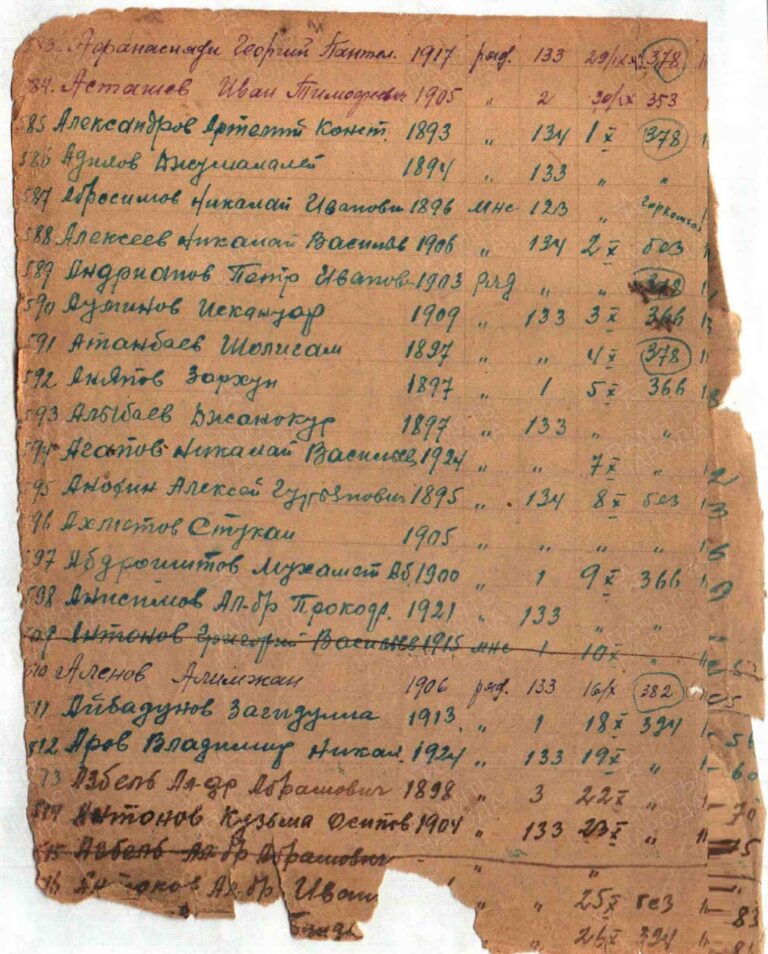 583. Афанасиади Георгий Пантел. 1917 ряд. 133 29/IX 378
584. Асташев Иван Тимофеевич 1905 " 2 30/IX 353
585 Александров Артемий Конст. 1893 " 134 1 X 378
586 Адилов Джумамалей 1894 " 133 " "
587 Абросимов Николай Иванови 1896 мнс 123 "
588 Алексеев Николай Васильев 1906 " 134 2 X без
589 Андрианов Петр Иванов 1903 ряд " " 378
590 Ауминов Искандар 1909 " 133 3 X 366
591 Атанбаев Шолисам 1897 " " 4 X 378
592 Анапов Зархун 1897 " 1 5 X 366
593 Алыбаев Джанокур 1897 " 133 " "
594 Агапов Николай Васильев 1924 " " 7 X "
595 Анофин Алексей 1895 " 134 8 X без
596 Ахметов Стукан 1905 " " " "
597 Абдрашитов Мухамет Аб. 1900 " 1 9 X 366
598 Анисимов Ал-др Прокофь. 1921 " 133 " "
Антонов Григорий Васильев 1915 мнс 1 10 X "
Аленов Алимжан 1906 ряд. 133 16/X 382
511 Айбадунов Загидулла 1913 " 1 18 X 324
512 Аров Владимир Никал. 1924 " 133 19 X "
13 Азбель Ал-др Абрамович 1898 " 3 22 X "
514 Антонов Кузьма Осипов 1904 " 133 23 X "
15 Азбель Ал-др Абрамович
Ал-др Иван " " 25 X без
" 26 X 324